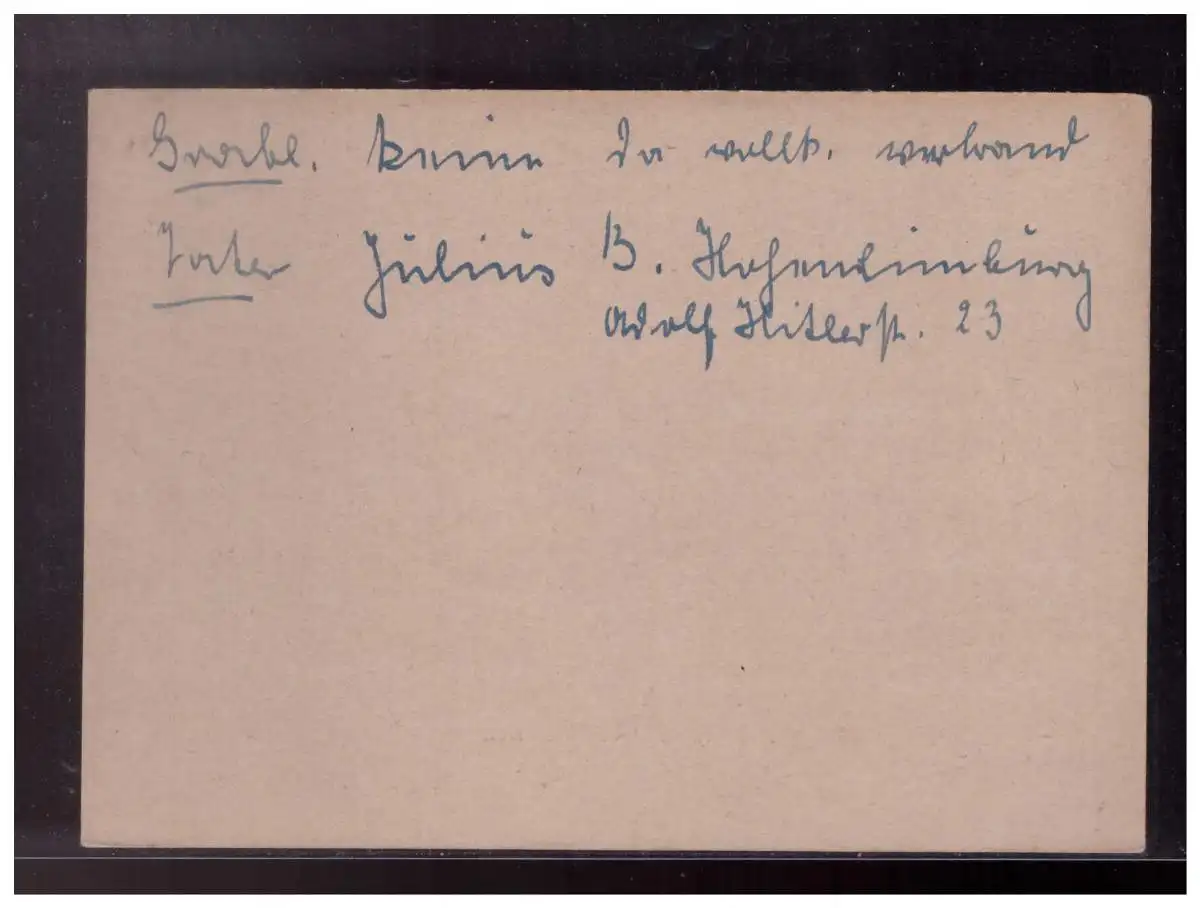 keine da vollk. verbrand
Vater Julius B. Hohenlimburg
Adolf Hitlerstr. 23